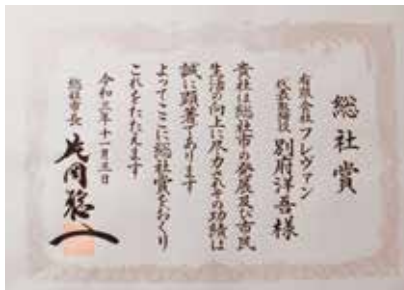 総社賞
有限会社フレヴァン
代表取締役 別府洋吾様
貴社は総社市の発展及び市民
生活の向上に尽力されその功績は
誠に顕著であります
よってここに総社賞をおくり
これをたたえます
令和三年十一月三日
総社市長 片岡聡一